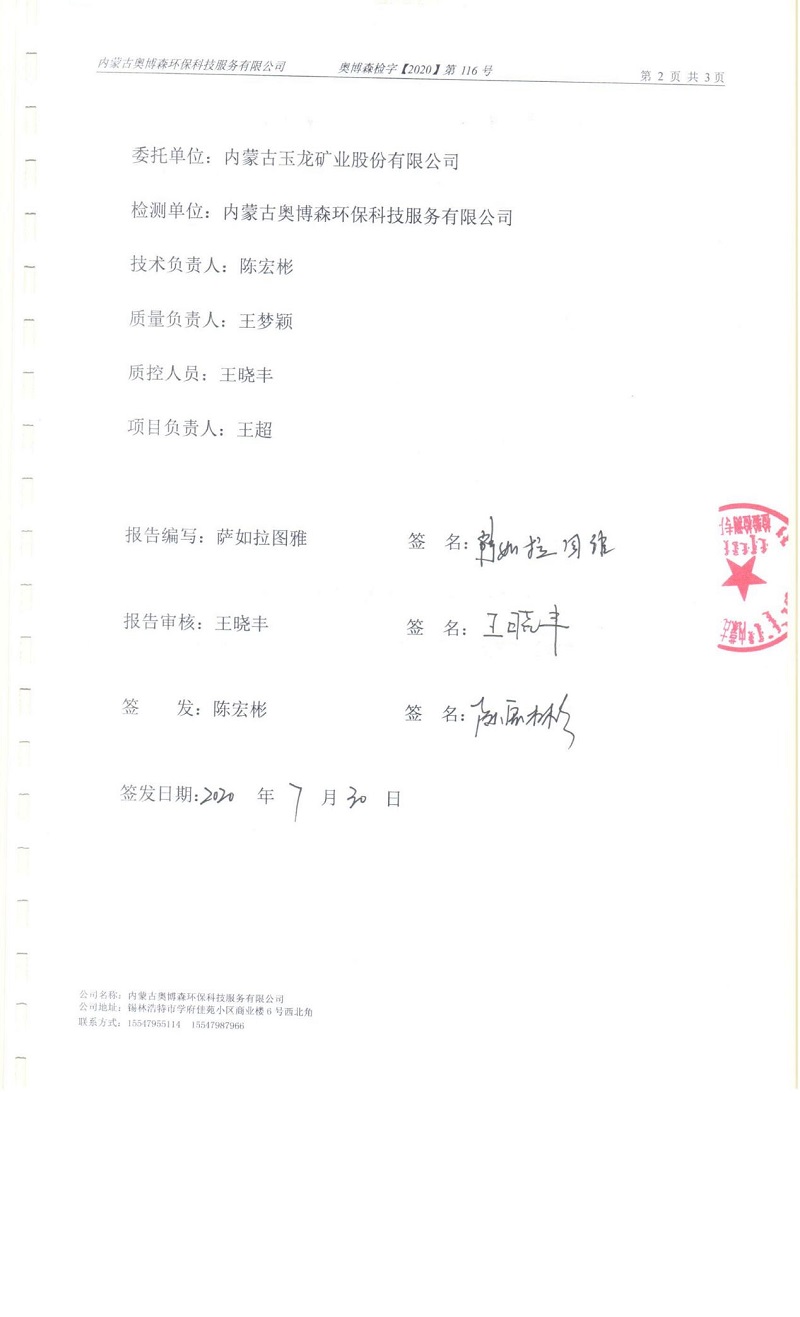 内蒙古奥博森环保科技服务有限公司 奥博森检字【2020】第 116 号 第 2 页 共 3 页
委托单位：内蒙古玉龙矿业股份有限公司
检测单位：内蒙古奥博森环保科技服务有限公司
技术负责人：陈宏彬
质量负责人：王梦颖
质控人员：王晓丰
项目负责人：王超
报告编写：萨如拉图雅 签 名：萨如拉图雅
报告审核：王晓丰 签 名：王晓丰
签 发：陈宏彬 签 名：陈宏彬
签发日期：2020 年 7 月 30 日
公司名称：内蒙古奥博森环保科技服务有限公司
公司地址：锡林浩特市学府佳苑小区商业楼 6 号西北角
联系方式：15547955114 15547987966